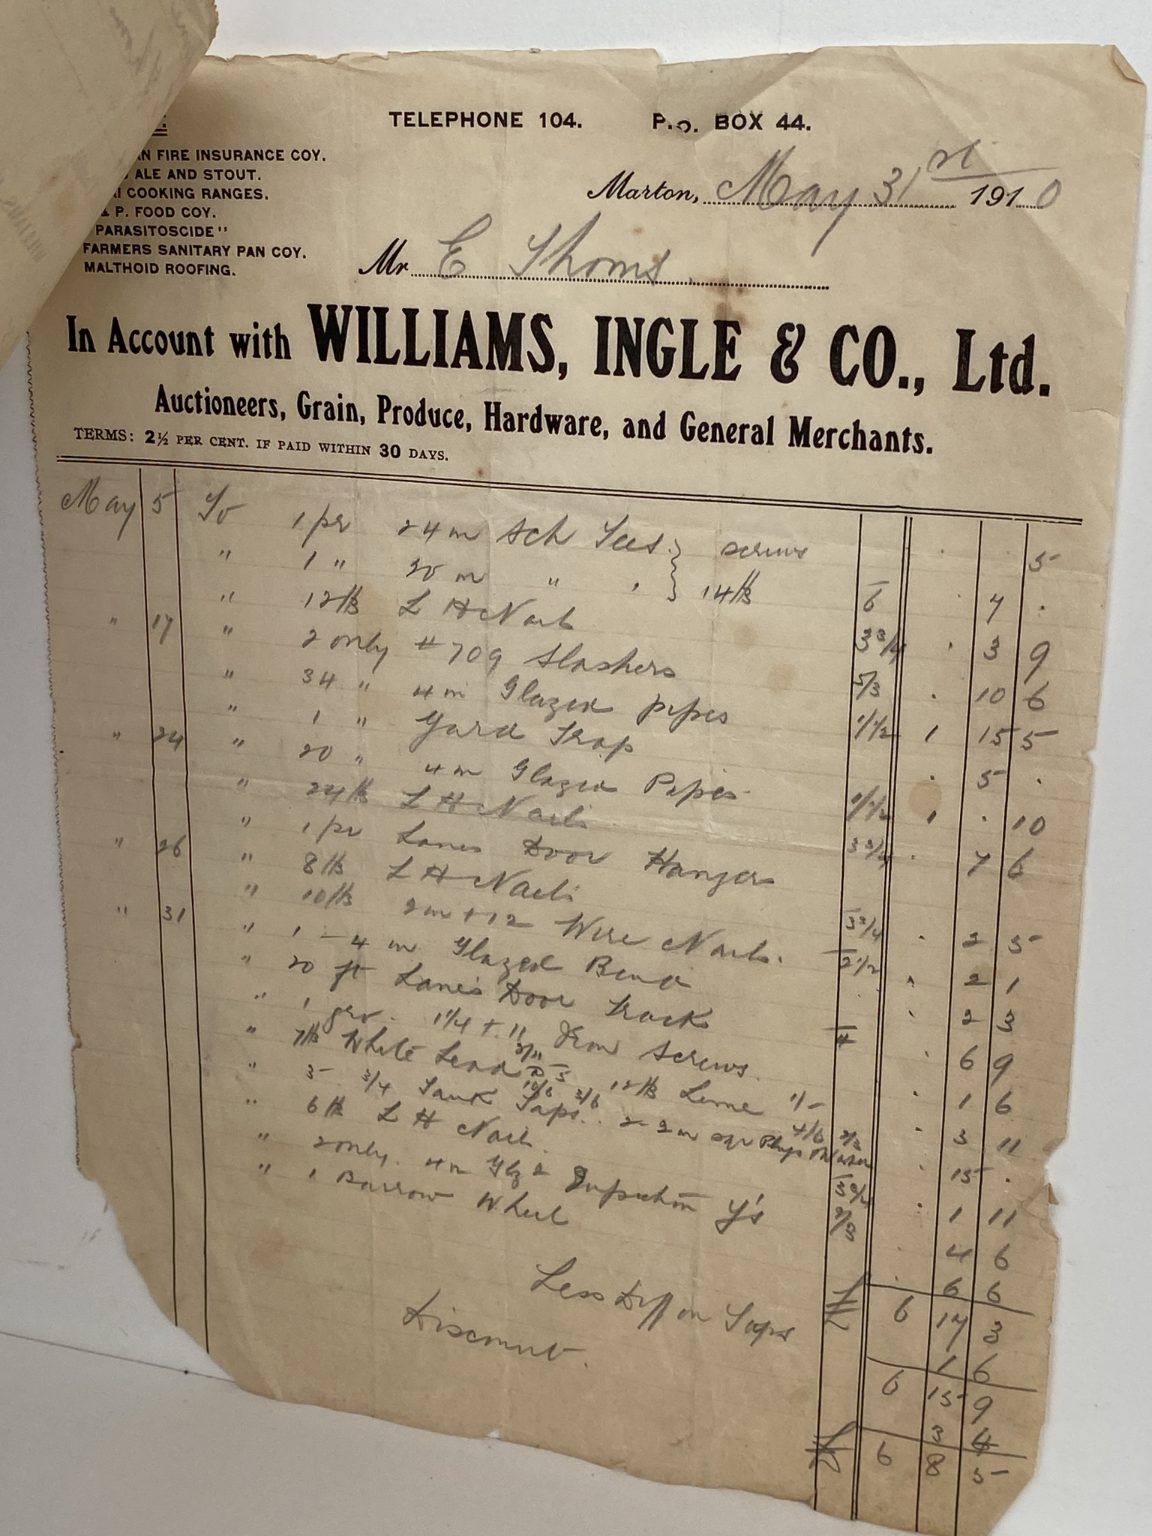 TELEPHONE 104. P.O. BOX 44.
FIRE INSURANCE COY.
ALE AND STOUT.
COOKING RANGES.
& P. FOOD COY.
PARASITOSCIDE"
FARMERS SANITARY PAN COY.
MALTHOID ROOFING.
Marton, May 31st 1910
Mr E Thoms
In Account with WILLIAMS, INGLE & CO., Ltd.
Auctioneers, Grain, Produce, Hardware, and General Merchants.
TERMS: 2½ PER CENT. IF PAID WITHIN 30 DAYS.
May 5 To 1 pr 24 in Sch Tees } screws 5
" 1 " 20 in " " } 14 lb 6 7 .
" 12 lb L H Nails 3 3/4 3 9
" 17 " 2 only # 709 Slashers 5/3 10 6
" 34 " 4 in Glazed pipes 1/1/2 1 15 5
" 1 " Yard Trap 5 .
" 24 " 20 " 4 in Glazed Pipes 1/1/2 1 . 10
" 24 lb L H Nails 3 3/4 7 6
" 1 pr Lanes Door Hangers
" 26 " 8 lb L H Nails 3 3/4 2 5
" 10 lb 2 in + 12 Wire Nails. 2 1/2 2 1
" 31 " 1 - 4 in Glazed Bend 2 3
" 20 ft Lane's Door Track 4 6 9
" 1 gro. 1 1/4 + 11 Iron Screws. 1 6
" 7 lb White Lead 12 lb Lime 1/- 3 11
" 5 3/4 Tank Taps 2 - 2 in 15 .
" 6 lb L H Nails 3 3/4 1 11
" 2 only 4 in Inspection Y's 2/3 4 6
" 1 Barrow Wheel 6 6
6 17 3
Less Diff on Taps 1 6
6 15 9
Discount. 3 4
6 8 5